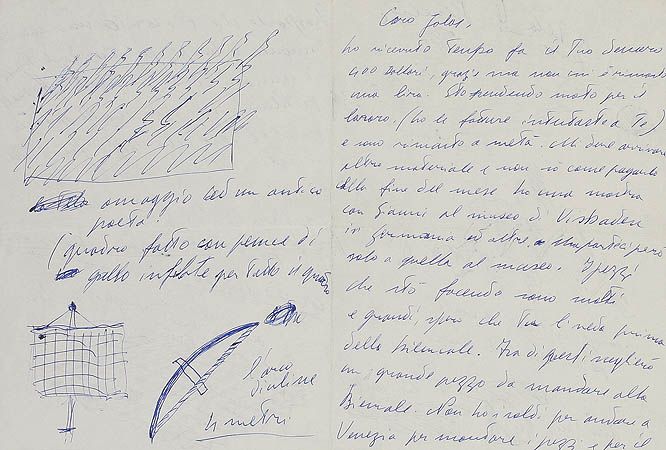 omaggio ad un antico
poeta
(quadro fatto con penne di
gallo infilate per tutto il quadro
l'arco
di ulisse
4 metri
Caro Jolas,
ho ricevuto tempo fa il tuo denaro
400 dollari, grazie ma non mi è rimasta
una lira. Sto spendendo molto per il
lavoro, (ho le fatture intestate a te)
e sono rimasto a metà. Mi deve arrivare
altro materiale e non so come pagarlo
alla fine del mese ho una mostra
con Gianni al museo di Visbaden
in Germania ed altre, però
solo a quella al museo. I pezzi
che sto facendo sono molti
e grandi, spero che tu li veda prima
della Biennale. Fra di questi sceglierò
un grande pezzo da mandare alla
Biennale. Non ho i soldi per andare a
Venezia per montare i pezzi e per il